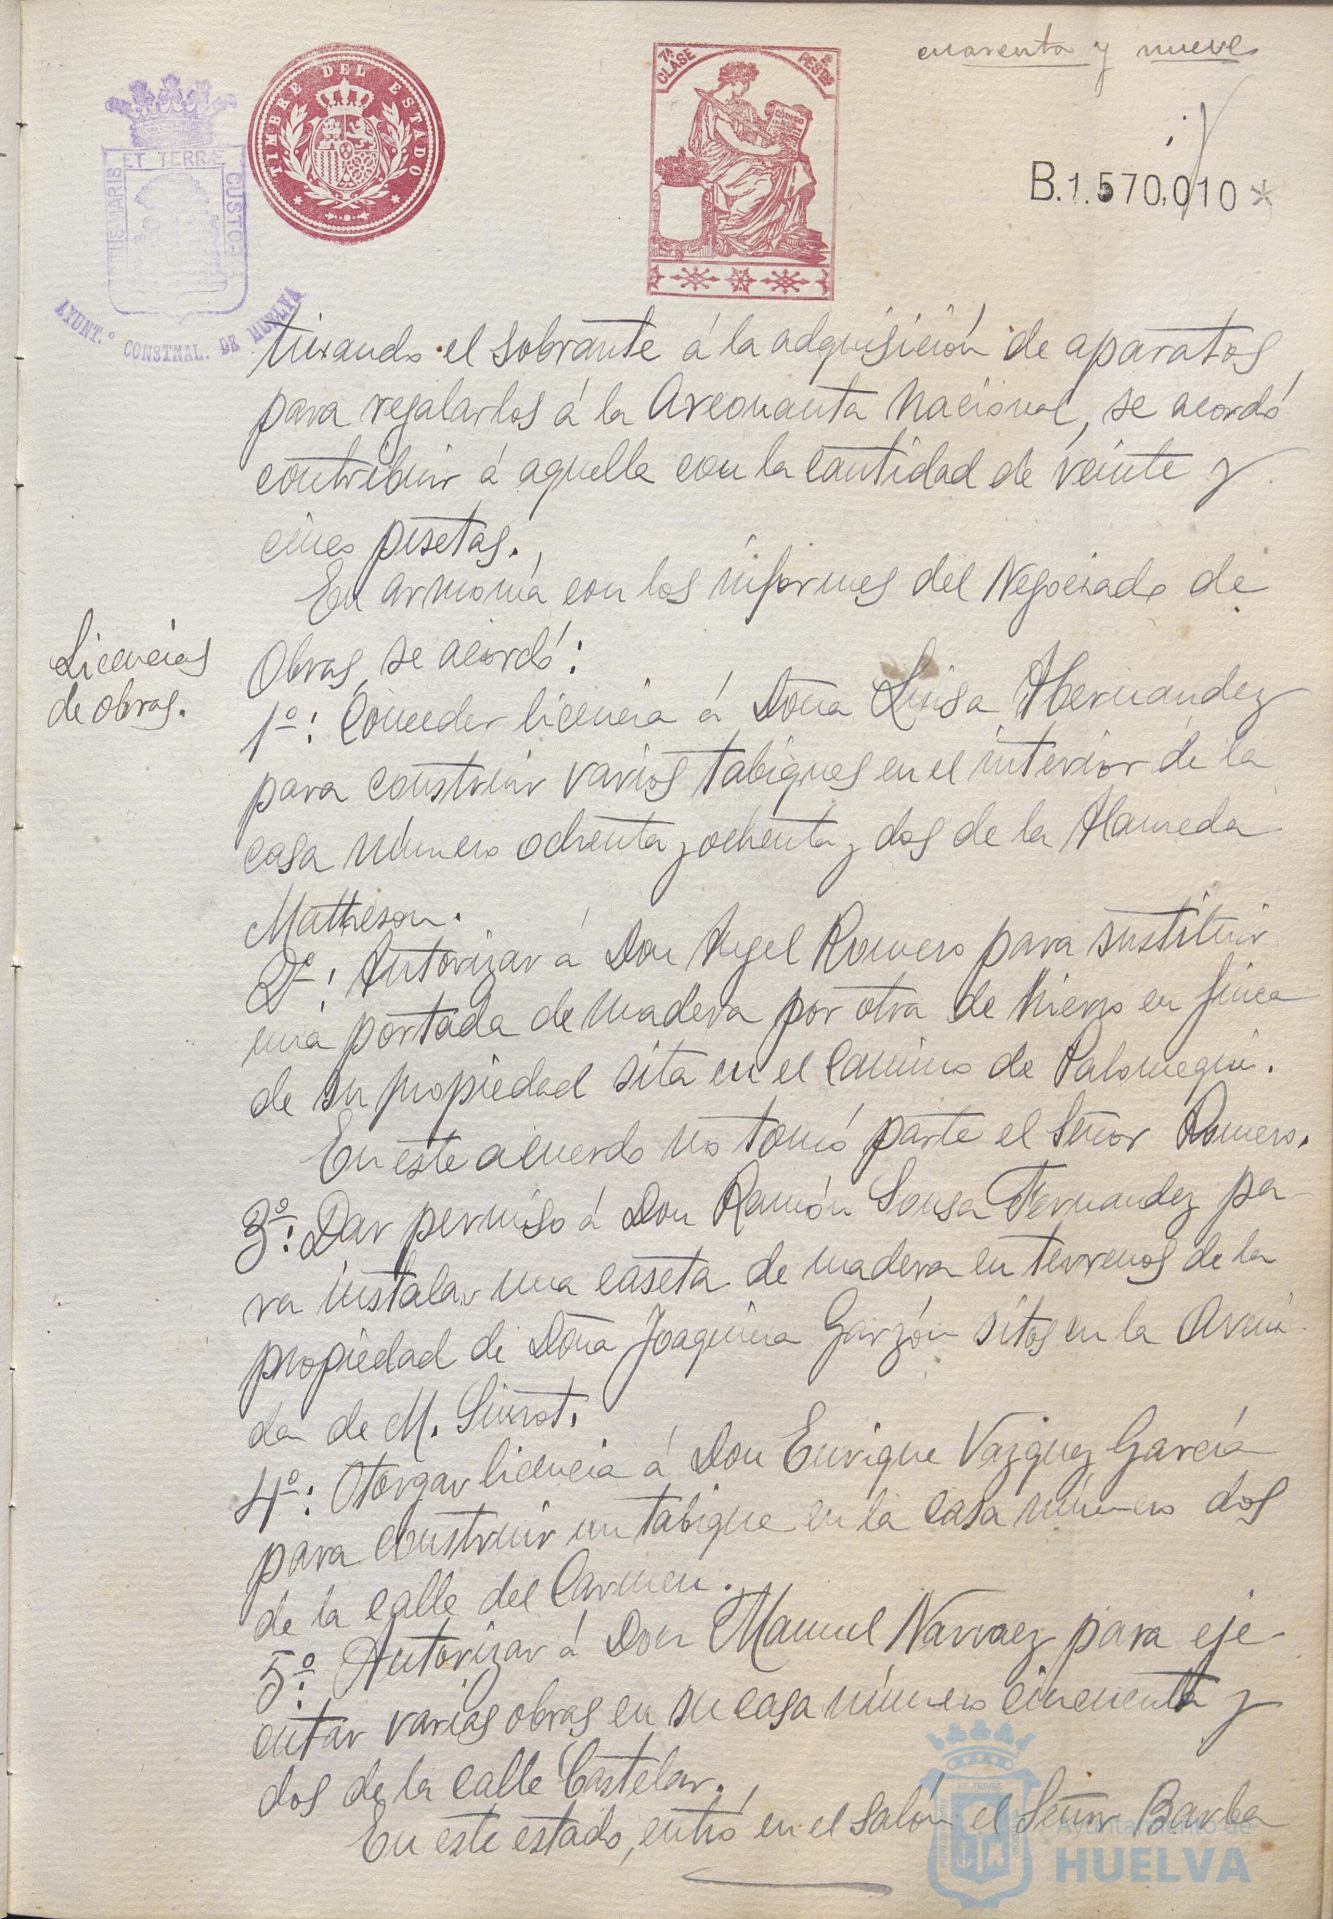 cuarenta y nueve
TIMBRE DEL ESTADO
7ª CLASE
2 PESETAS
CÓDIGO
B.1.570,010*
ET TERRÆ
CUSTO
AYUNT.º CONSTNAL. DE HUELVA
tinando el sobrante á la adquisición de aparatos
para regalarlos á la Areonauta Nacional, se acordó
contribuir á aquella con la cantidad de veinte y
cinco pesetas.
En armonía con los informes del Negociado de
Licencias
de obras.
Obras, se acordó:
1º: Conceder licencia á Doña Luisa Hernandez
para construir varios tabiques en el interior de la
casa número ochenta y ochenta y dos de la Alameda
Matheson.
2º: Autorizar á Don Angel Romero para sustituir
una portada de madera por otra de hierro en finca
de su propiedad sita en el Camino de Palomeque.
En este acuerdo no tomó parte el Señor Romero.
3º: Dar permiso á Don Ramón Sousa Fernandez pa-
ra instalar una caseta de madera en terrenos de la
propiedad de Doña Joaquina Garzón sitos en la Aveni-
da de M. Siurot.
4º: Otorgar licencia á Don Enrique Vazquez García
para construir un tabique en la casa número dos
de la calle del Carmen.
5º: Autorizar á Don Manuel Narvaez para eje-
cutar varias obras en su casa número cincuenta y
dos de la calle Castelar.
En este estado, entró en el salón el Señor Barba
Ayuntamiento de
HUELVA